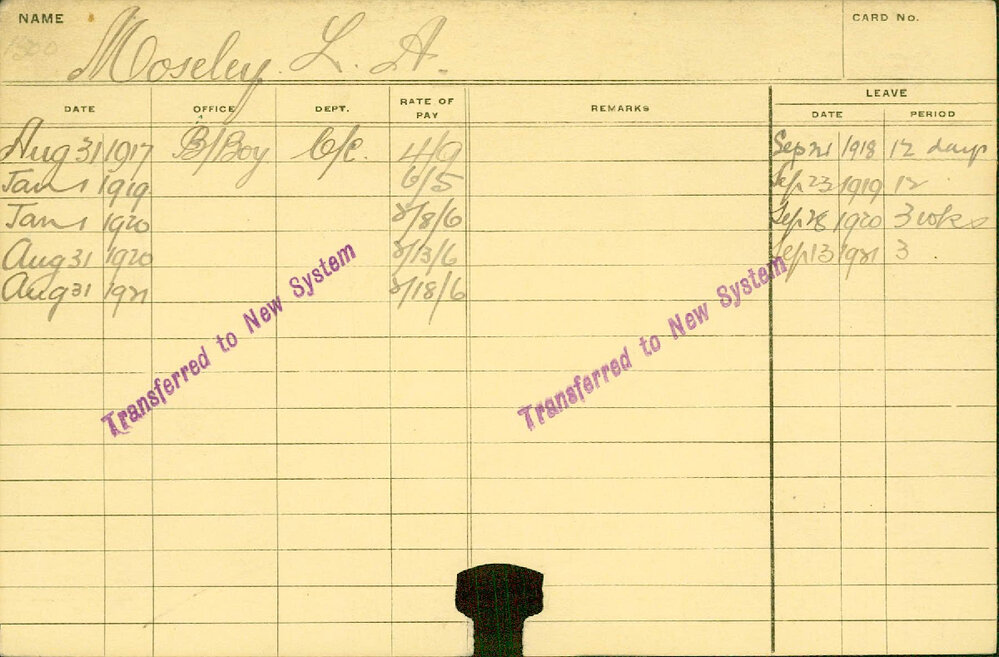 NAME CARD No.
Moseley L. A.
LEAVE
DATE OFFICE DEPT. RATE OF PAY REMARKS DATE PERIOD
Aug 31 1917 B/Boy C/C. 4/9 Sep 21 1918 12 days
Jan 1 1919 6/5 Sep 23 1919 12
Jan 1 1920 /8/6 Sep 1920 3 wks
Aug 31 1920 /13/6 Sep 13 1921 3
Aug 31 1921 /18/6
Transferred to New System
Transferred to New System